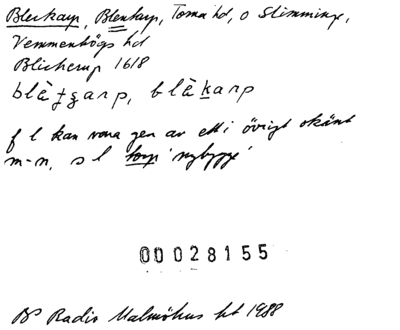 Bleckarp, Blenkarp, Torna hd, o Slimminge,
Vemmenhögs hd
Blickerup 1618
blè karp
f l kan vara gen av ett i övrigt okänt
m-n, s l torp 'nybygge'
00028155
BS Radio Malmöhus ht 1988